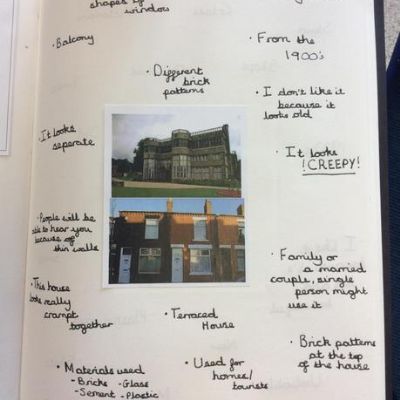 shapes of
windows
· Balcony
· From the
1900's
· Different
brick
patterns
· I don't like it
because it
looks old
· It looks
seperate
· It looks
!CREEPY!
· People will be
able to hear you
because of
thin walls
· Family or
a married
couple, single
person might
use it
· This house
looks really
crampt
together
· Terraced
House
· Brick patterns
at the top
of the house
· Materials used
- Bricks - Glass
- Sement - Plastic
· Used for
homes/
tourists